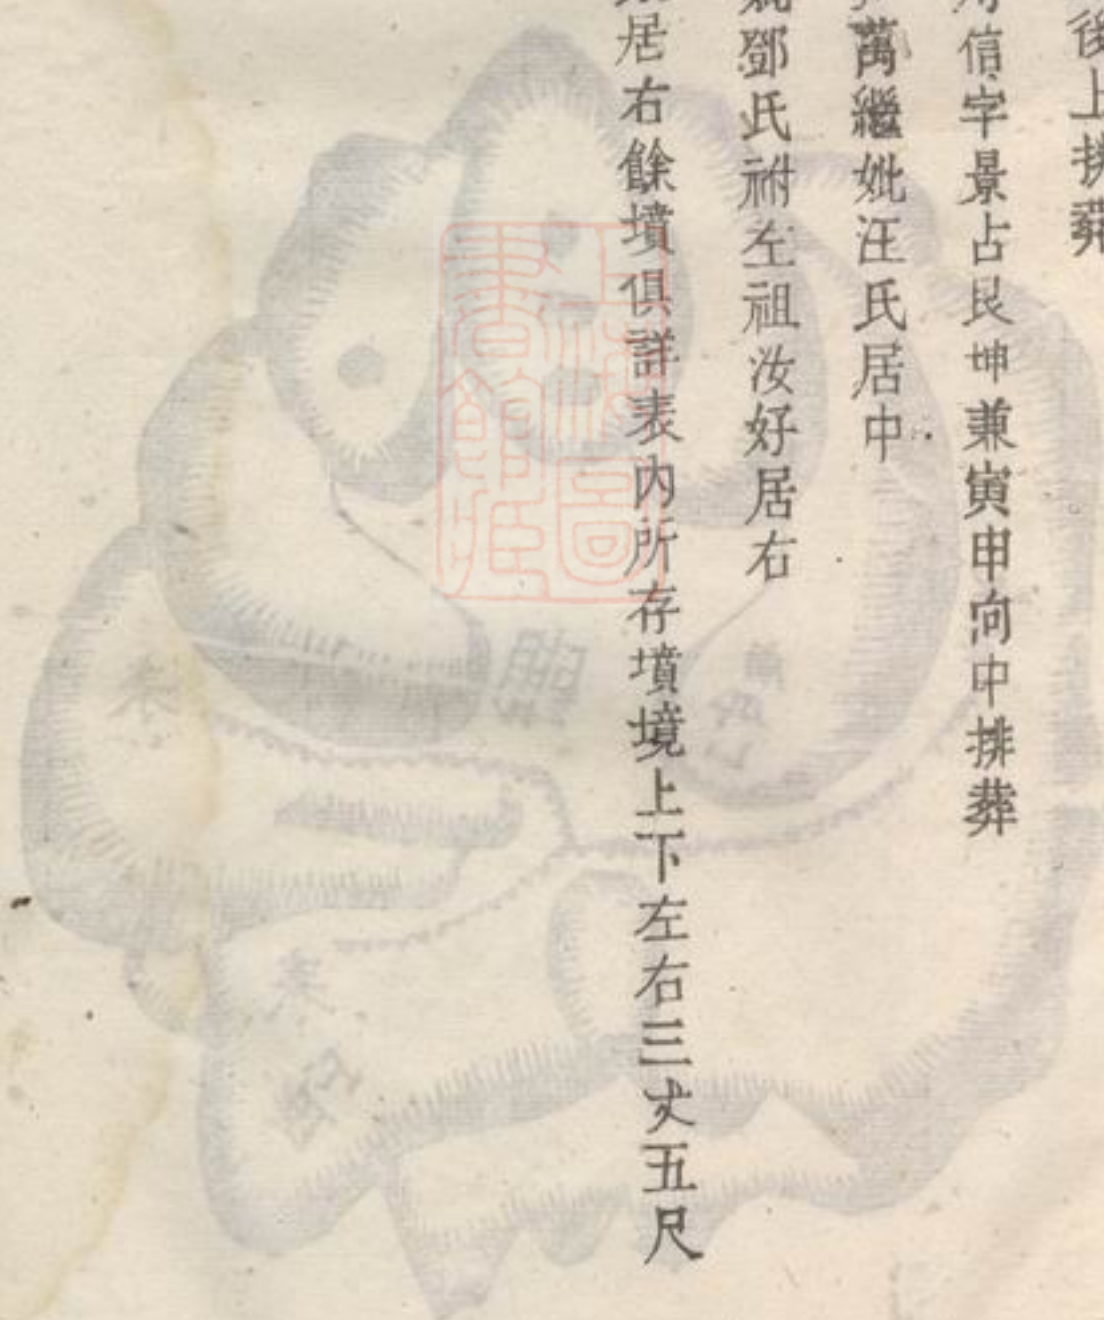 後上排葬
信字景占艮坤兼寅申向中排葬
萬繼妣汪氏居中
鄧氏祔左祖汝好居右
居右餘墳俱詳表內所存墳境上下左右三丈五尺
上海圖
書館藏